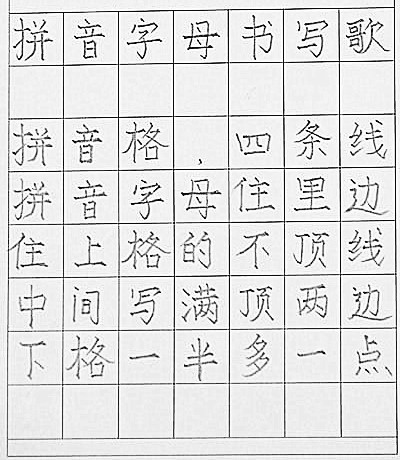 拼音字母书写歌
拼音格,四条线
拼音字母住里边
住上格的不顶线
中间写满顶两边
下格一半多一点